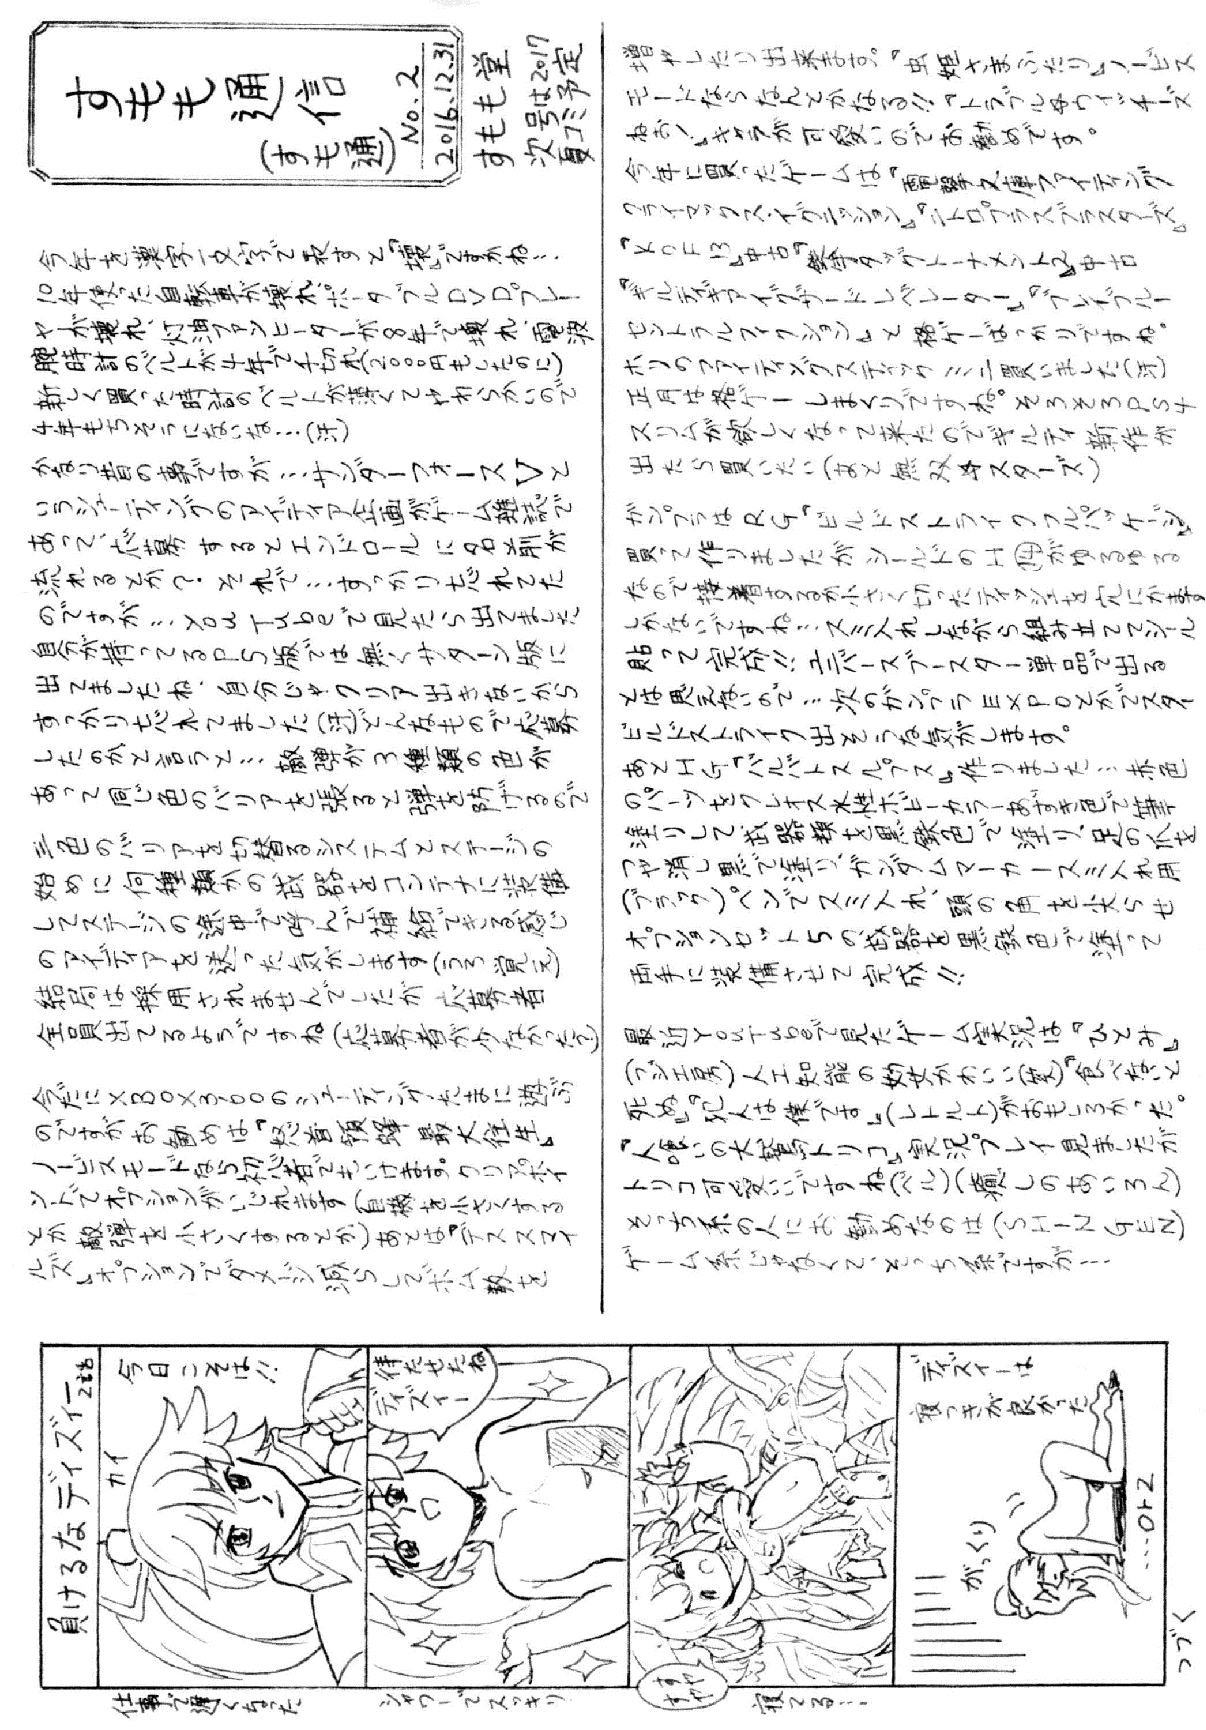 すもも通信
(すも通)
No.2
2016.12.31
すもも堂
次号は2017
夏コミ予定
今年を漢字一文字で表すと『壊』ですかね…
10年使った自転車が壊れ、ポータブルDVDプレー
ヤが壊れ、灯油ファンヒーターが8年で壊れ、電波
腕時計のベルトが4年で千切れ(2000円もしたのに)
新しく買った時計のベルトが薄くてやわらかいので
4年もちそうにないな…(汗)
かなり昔の事ですが…サンダーフォースVと
いうシューティングのアイディア企画がゲーム雑誌で
あって、応募するとエンドロールに名前が
流れるとか？それで…すっかり忘れてた
のですが…YouTubeで見たら出てました
自分が持ってるPS版では無くサターン版に
出てましたね、自分じゃクリア出きないから
すっかり忘れてました(汗)どんなもので応募
したのかと言うと…敵弾が3種類の色が
あって同じ色のバリアを張ると弾を防げるので
三色のバリアを切替るシステムとステージの
始めに何種類かの武器をコンテナに装備
してステージの途中で呼んで補給できる感じ
のアイディアを送った気がします(うろ覚え)
結局は採用されませんでしたが応募者
全員出てるようですね(応募者が少なかった？)
今だにXBOX360のシューティングたまに遊ぶ
のですがお勧めは『怒首領蜂 最大往生』
ノービスモードなら初心者でもいけます。クリアポイ
ントでオプションがいじれます(自機を小さくする
とか敵弾を小さくするとか)あとは『デススマイ
ルズ』オプションでダメージ減らしてボム数を
増やしたり出来ます。『虫姫さまふたり』ノービス
モードならなんとかなる!!『トラブル☆ウィッチーズ
ねお!』キャラが可愛いのでお勧めです。
今年に買ったゲームは『電撃文庫ファイティング
クライマックスイグニッション』『ニトロプラスブラスターズ』
『KOF13』中古『鉄拳タッグトーナメント2』中古
『ギルティギアイグザードレベレーター』『ブレイブルー
セントラルフィクション』と格ゲーばっかりですね。
ホリのファイティングスティックミニ買いました(汗)
正月は格ゲーしまくりですね。そろそろPS4
スリムが欲しくなって来たのでギルティ新作が
出たら買いたい(あと無双☆スターズ)
ガンプラはRG『ビルドストライクフルパッケージ』
買って作りましたがシールドのH⑭がゆるゆる
なので接着するか小さく切ったティッシュを穴にかます
しかないですね…スミ入れしながら組み立ててシール
貼って完成!!ユニバースブースター単品で出る
とは思えないので…次のガンプラEXPOとかでスター
ビルドストライク出そうな気がします。
あとHG『バルバトスルプス』作りました…赤色
のパーツをクレオス水性ホビーカラーあずき色で筆
塗りして武器類を黒鉄色で塗り、足の爪を
つや消し黒で塗り、ガンダムマーカースミ入れ用
(ブラック)ペンでスミ入れ、頭の角を尖らせ
オプションセット5の武器を黒鉄色で塗って
両手に装備させて完成!!
最近YouTubeで見たゲーム実況は『ひとみ』
(フジ工房)人工知能の幼女かわいい(笑)『食べないと
死ぬ』『犯人は僕です』(レトルト)がおもしろかった。
『人喰いの大鷲トリコ』実況プレイ見ましたが
トリコ可愛いですね(ベル)(癒しのあいろん)
そっち系の人にお勧めなのは(SHIN GEN)
ゲーム系じゃなくて、そっち系ですが…
負けるなディズィー
2話
今日こそは!!
カイ
仕事で遅くなった
待たせたね
ディズィー
シャワーでスッキリ
すやすや
寝てる…
ディズィーは
寝つきが良かった
がっくり
…OTZ
つづく